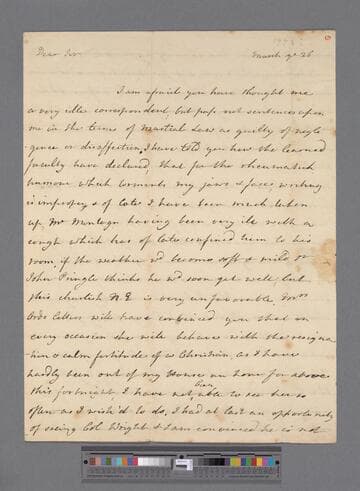 Dear Sir March ye 26
I am afraid you have thought me
a very idle correspondent but pass not sentence upon
me in the terms of Martial Law as guilty of negli
gence or disaffection, I have told you how the learned
faculty have declared, that for the rheumatick
humour which torments my jaws & face, writing
is improper, & of late I have been much taken
up, Mr Montagu having been very ill with a
cough which has of late confined him to his
room, if the weather wd become soft & mild Sr
John Pringle thinks he wd soon get well, but
this churlish N. E. is very unfavorable, Mrs
Ords letters will have convinced you that on
every occasion she will behave with the resigna
tion & calm fortitude of a Christian, as I have
hardly been out of my House an hour for above
this fortnight I have not been able to see her so
often as I wish'd to do, I had at last an opportunity
of seeing Col Wright & I am convinced he is not